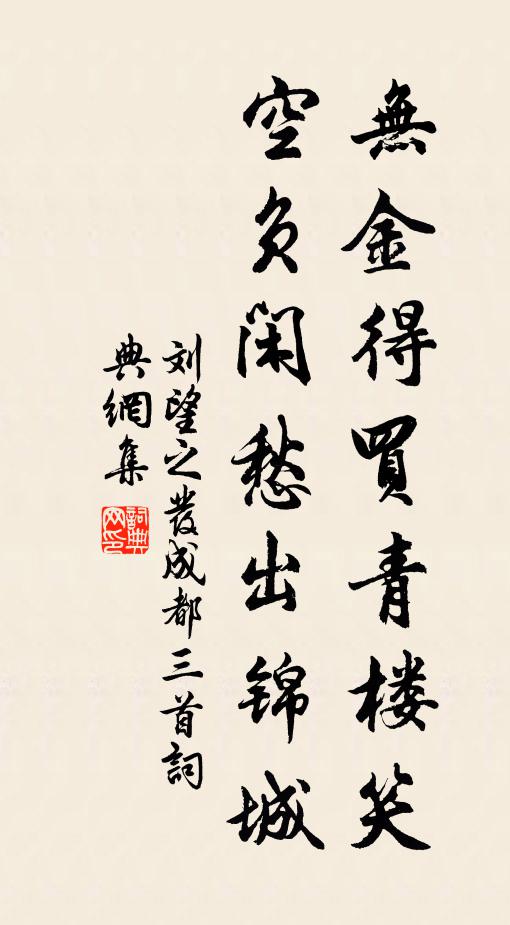 無金得買青楼笑
空負閑愁出锦城
刘望之發成都三首詞
典網集
詞典
网印